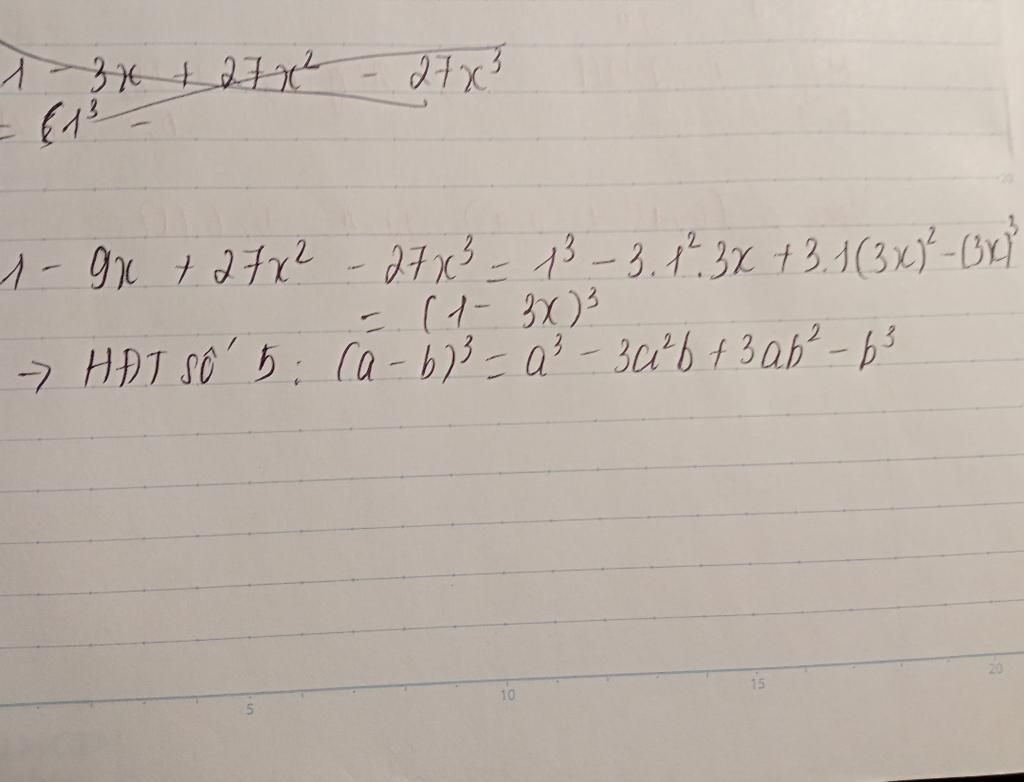 1 - 3x + 27x² - 27x³
= (1³ -
1 - 9x + 27x² - 27x³ = 1³ - 3.1².3x + 3.1(3x)² - (3x)³
= (1 - 3x)³
→ HĐT số 5 : (a - b)³ = a³ - 3a²b + 3ab² - b³
5 10 15 20